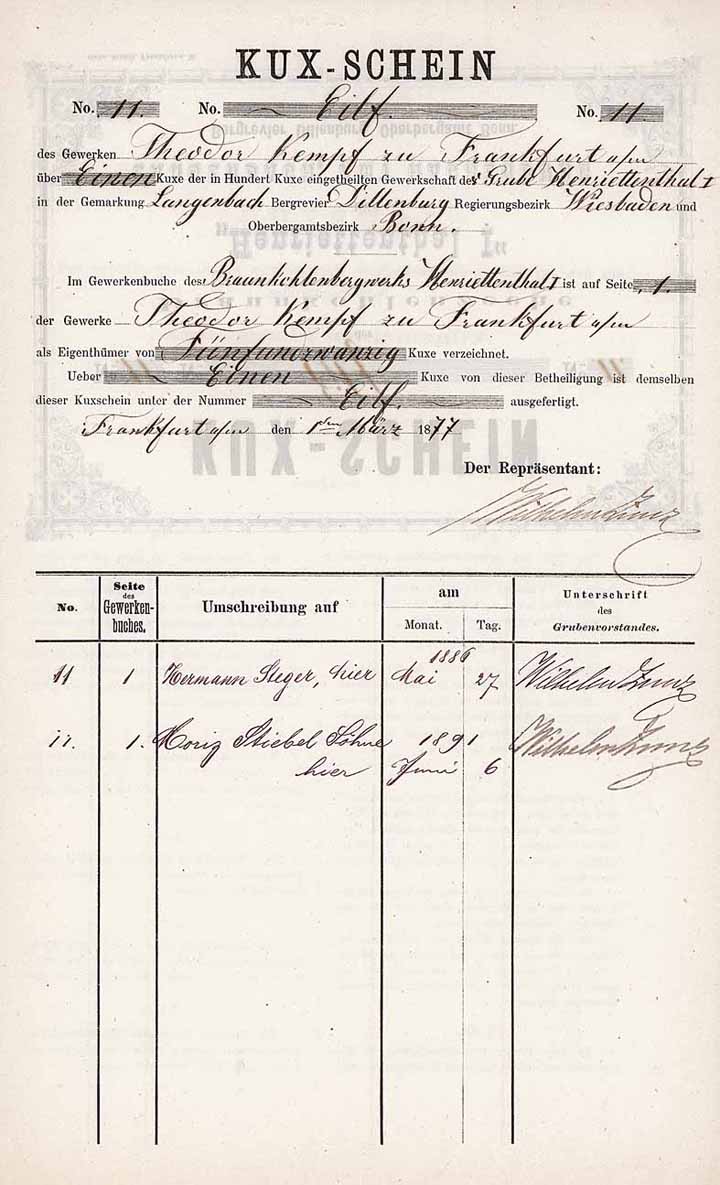 KUX-SCHEIN
No. 11. No. Eilf. No. 11
des Gewerken Theodor Kempf zu Frankfurt a/m
über Einen Kuxe der in Hundert Kuxe eingetheilten Gewerkschaft der Grube Henriettenthal I
in der Gemarkung Langenbach Bergrevier Dillenburg Regierungsbezirk Wiesbaden und
Oberbergamtsbezirk Bonn.
Im Gewerkenbuche des Braunkohlenbergwerks Henriettenthal I ist auf Seite 1.
der Gewerke Theodor Kempf zu Frankfurt a/m
als Eigenthümer von Fünfundzwanzig Kuxe verzeichnet.
Ueber Einen Kuxe von dieser Betheiligung ist demselben
dieser Kuxschein unter der Nummer Eilf. ausgefertigt.
Frankfurt a/m den 1ten März 1877
Der Repräsentant:
Wilhelm
No. Seite des Gewerken-buches. Umschreibung auf am Monat. Tag. Unterschrift des Grubenvorstandes.
1886
11 1 Hermann Steger, hier Mai 27 Wilhelm
11. 1. Moriz Stiebel Söhne 1891 Wilhelm
hier Juni 6